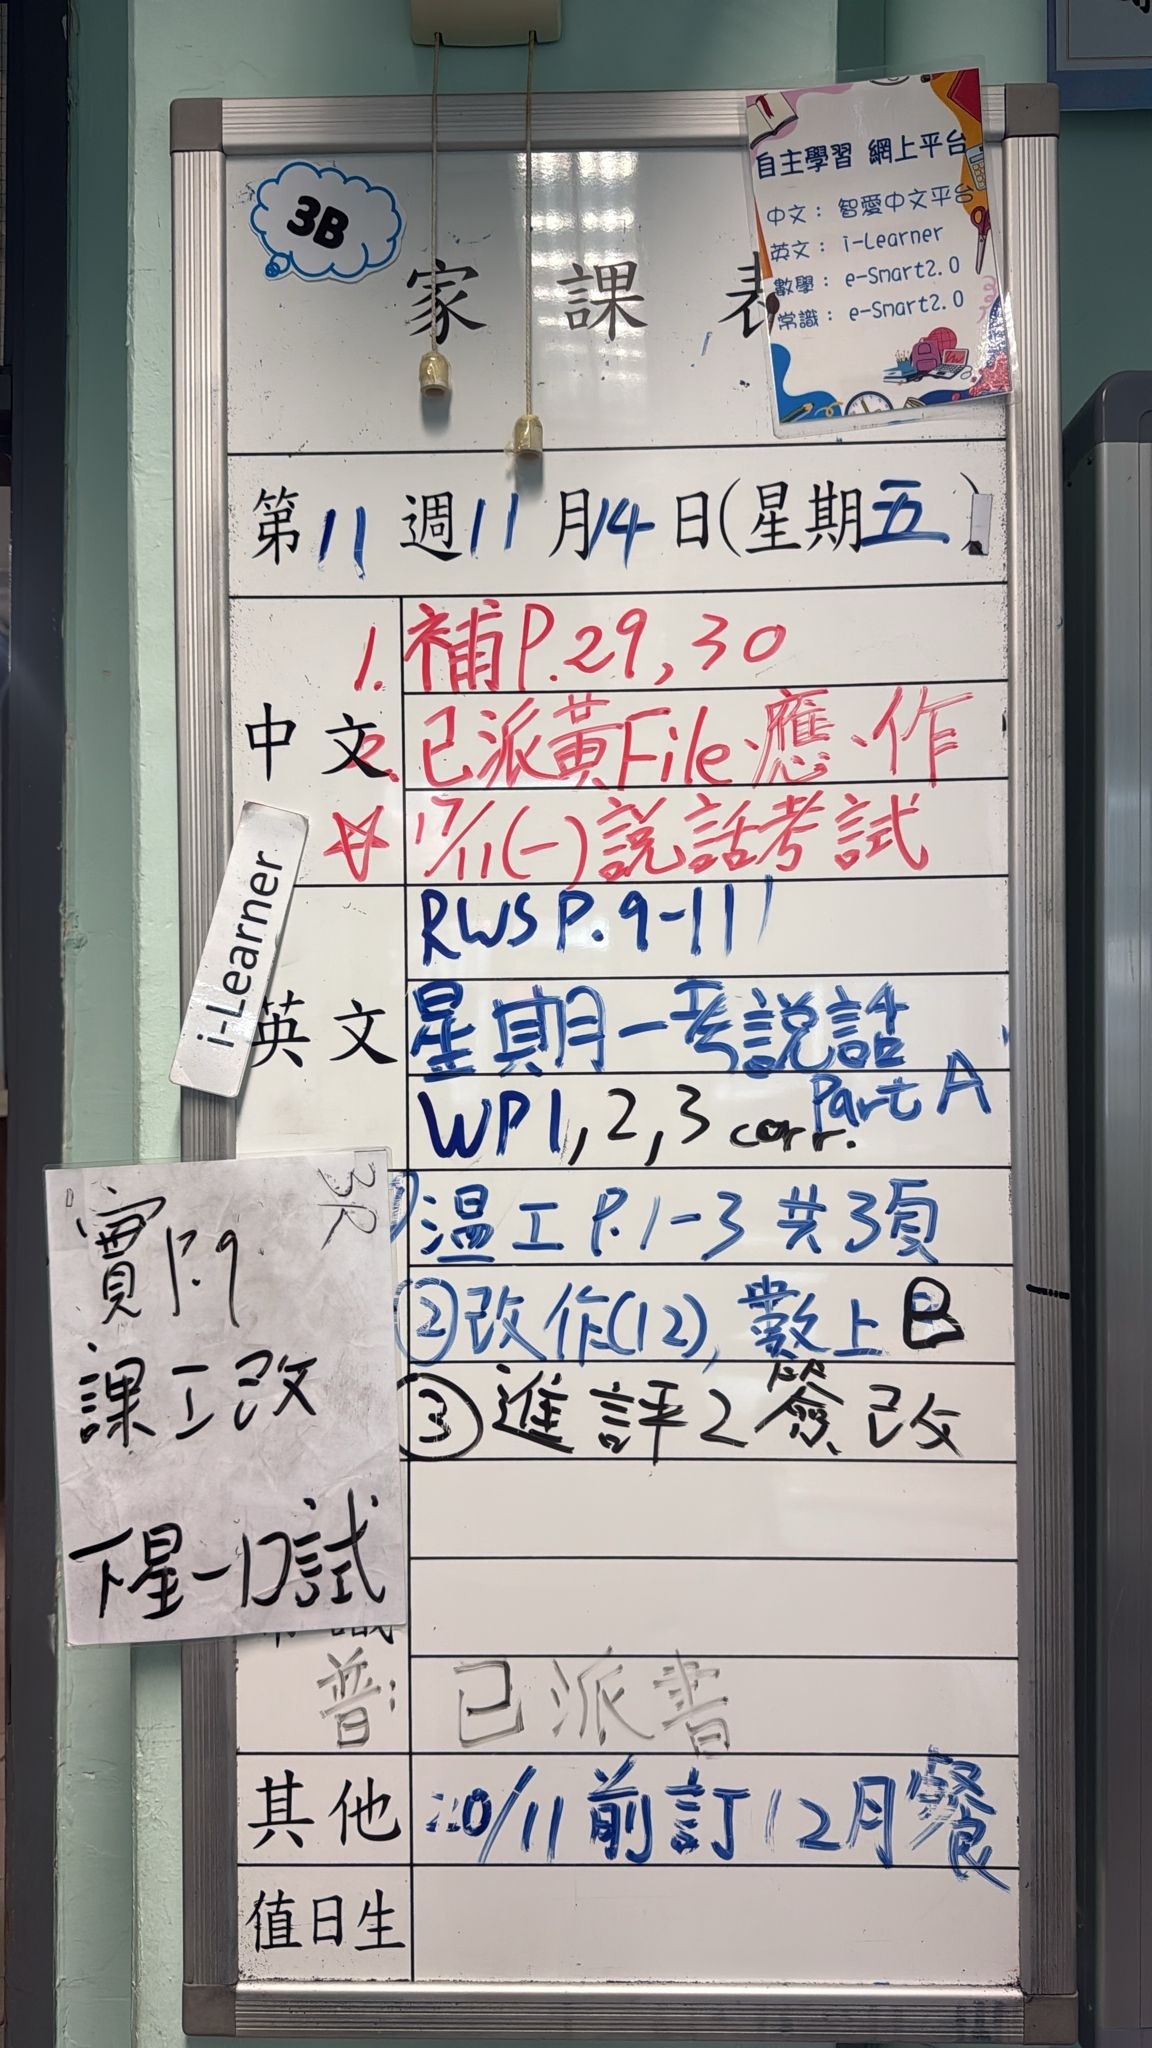 3B
家課表
自主學習 網上平台
中文：智愛中文平台
英文：i-Learner
數學：e-Smart2.0
常識：e-Smart2.0
第11週11月14日(星期五)
中文
1. 補P.29,30
2. 已派黃File、應、作
☆ 17/11(一)說話考試
i-Learner
英文
RWS P.9-11
星期一考說話
Part A
WP1,2,3 corr.
溫工P.1-3共3項
②改作(12), 數上B
③進評2簽改
P.9
課工改
下星一口試
常識
普: 已派書
其他
20/11前訂12月餐
值日生